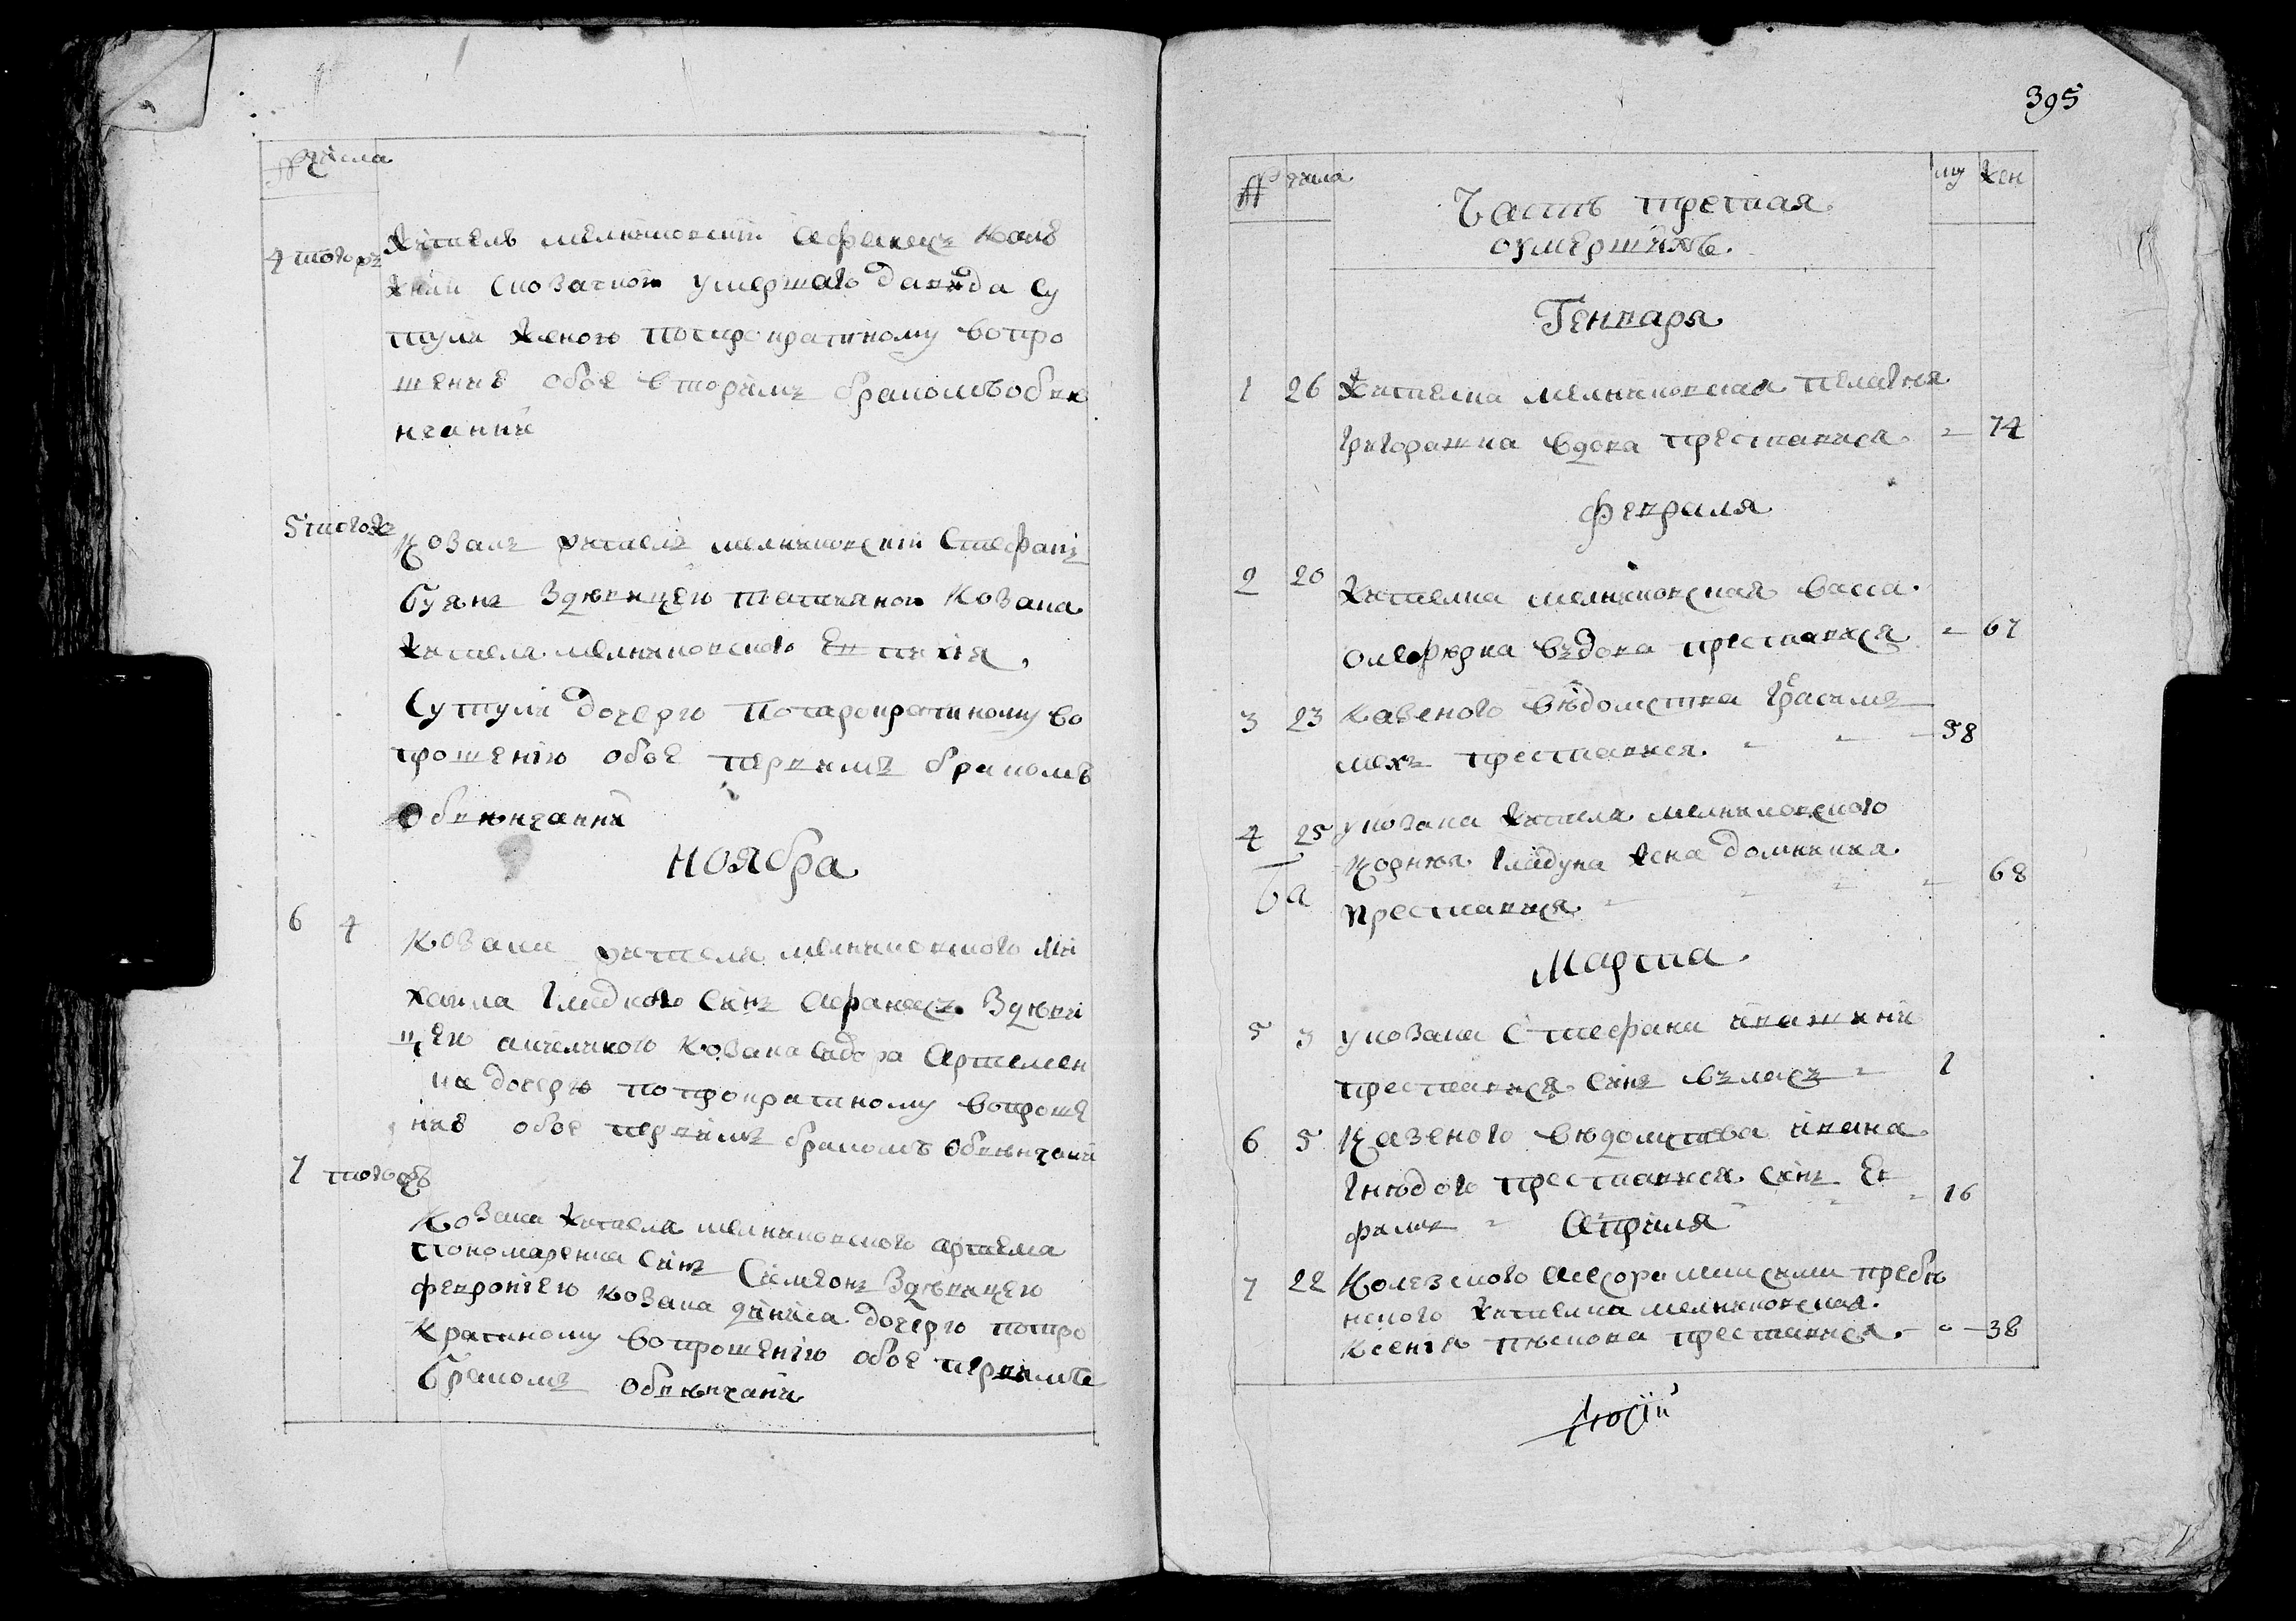 № Числа
4 тогожъ
Житель мелниковскій Афанасъ Калю
жний споЗасною умершаго давида Су
тули женою потрократному вопро
шению обое вторимъ бракомъ обвѣ
нчанни
5 тогожъ
Козакъ житель мелниковскій Стефанъ
буянъ Здѣвицею татияною Козака
жителя мелниковского Евтихія
Сутули дочерю Потарократному во
прошенію обое первимъ бракомъ
Обвѣнчанни
Ноября
6 4
Козака жителя мелниковского Ми
хаила Гладкого Синъ Афанасъ Здѣви
цею Козака Сидора Артемен
ка дочерю потрократному вопроше
нию обое первимъ бракомъ обвѣнчани
7 тогожъ
Козака жителя мелниковского артема
Пономаренка Синъ Симеонъ Здѣвицею
феврониею Козака диниса дочерю потро
Кратному вопрошенію обое первимъ
бракомъ обвѣнчани
395
№ числа
му жен
Часть третая
оумершихъ.
Генваря
1 26 Жителка мелниковская пелагия
Григорашка вдова преставися 74
Февраля
2 20 Жителка мелниковская васса
Олефѣрка въдова преставися 67
3 23 Казеного вѣдомства Герасимъ
мехъ преставися. 58
4 25 укозака жителя мелниковского
Корнѣя Гладуна жена домникия
преставися 68
Марта
5 3 укозака Стефана ивашини
преставися Синъ влласъ 1
6 5 Казеного вѣдомства ивана
Гнѣдого преставися Синъ Ев
фимъ 16
Априля
7 22 Колезского асесора
нского жителка мелниковская
Ксенія пѣскова преставися. 38